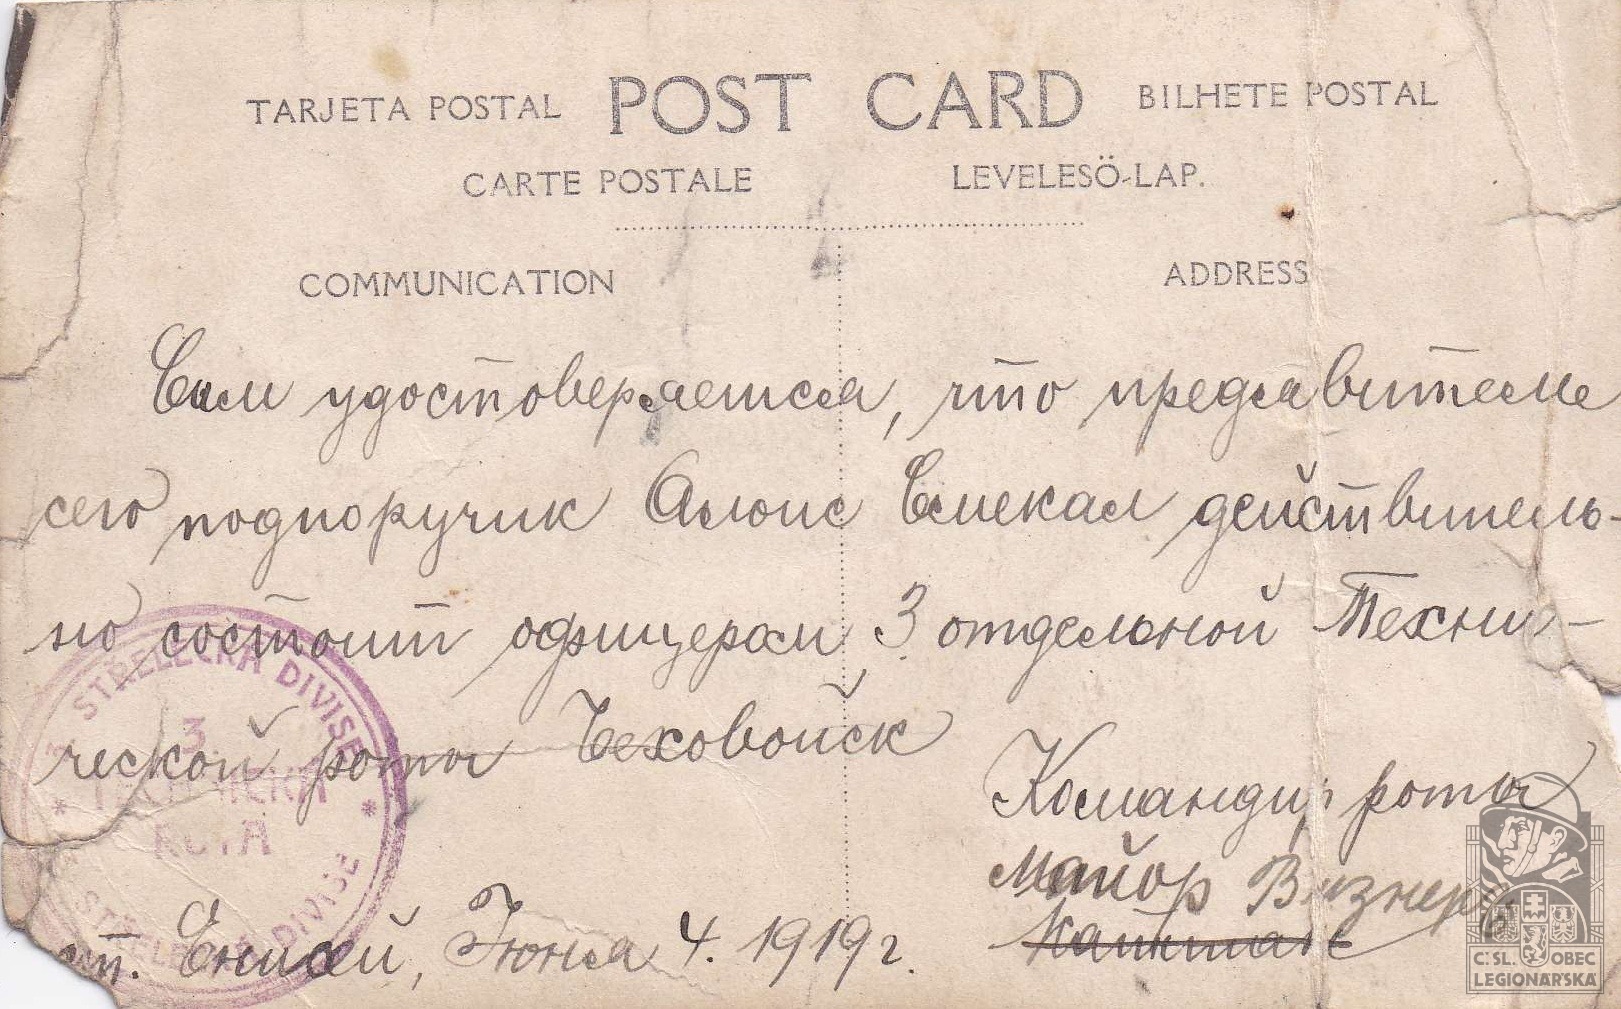 TARJETA POSTAL POST CARD BILHETE POSTAL
CARTE POSTALE LEVELESÖ-LAP.
COMMUNICATION ADDRESS
Сим удостоверяется, что предъявитель
сего подпоручик Алоис Смекал действитель-
но состоит офицером 3 отдельной Техни-
ческой роты Чеховойск
Командир роты
Майор Визнер
Капитан
ст. Енисей, Июня 4. 1919 г.
3. STŘELECKÁ DIVISE
3.
TECHNICKÁ
ROTA
STŘELECKÁ DIVISE
Č. SL. OBEC
LEGIONÁŘSKÁ